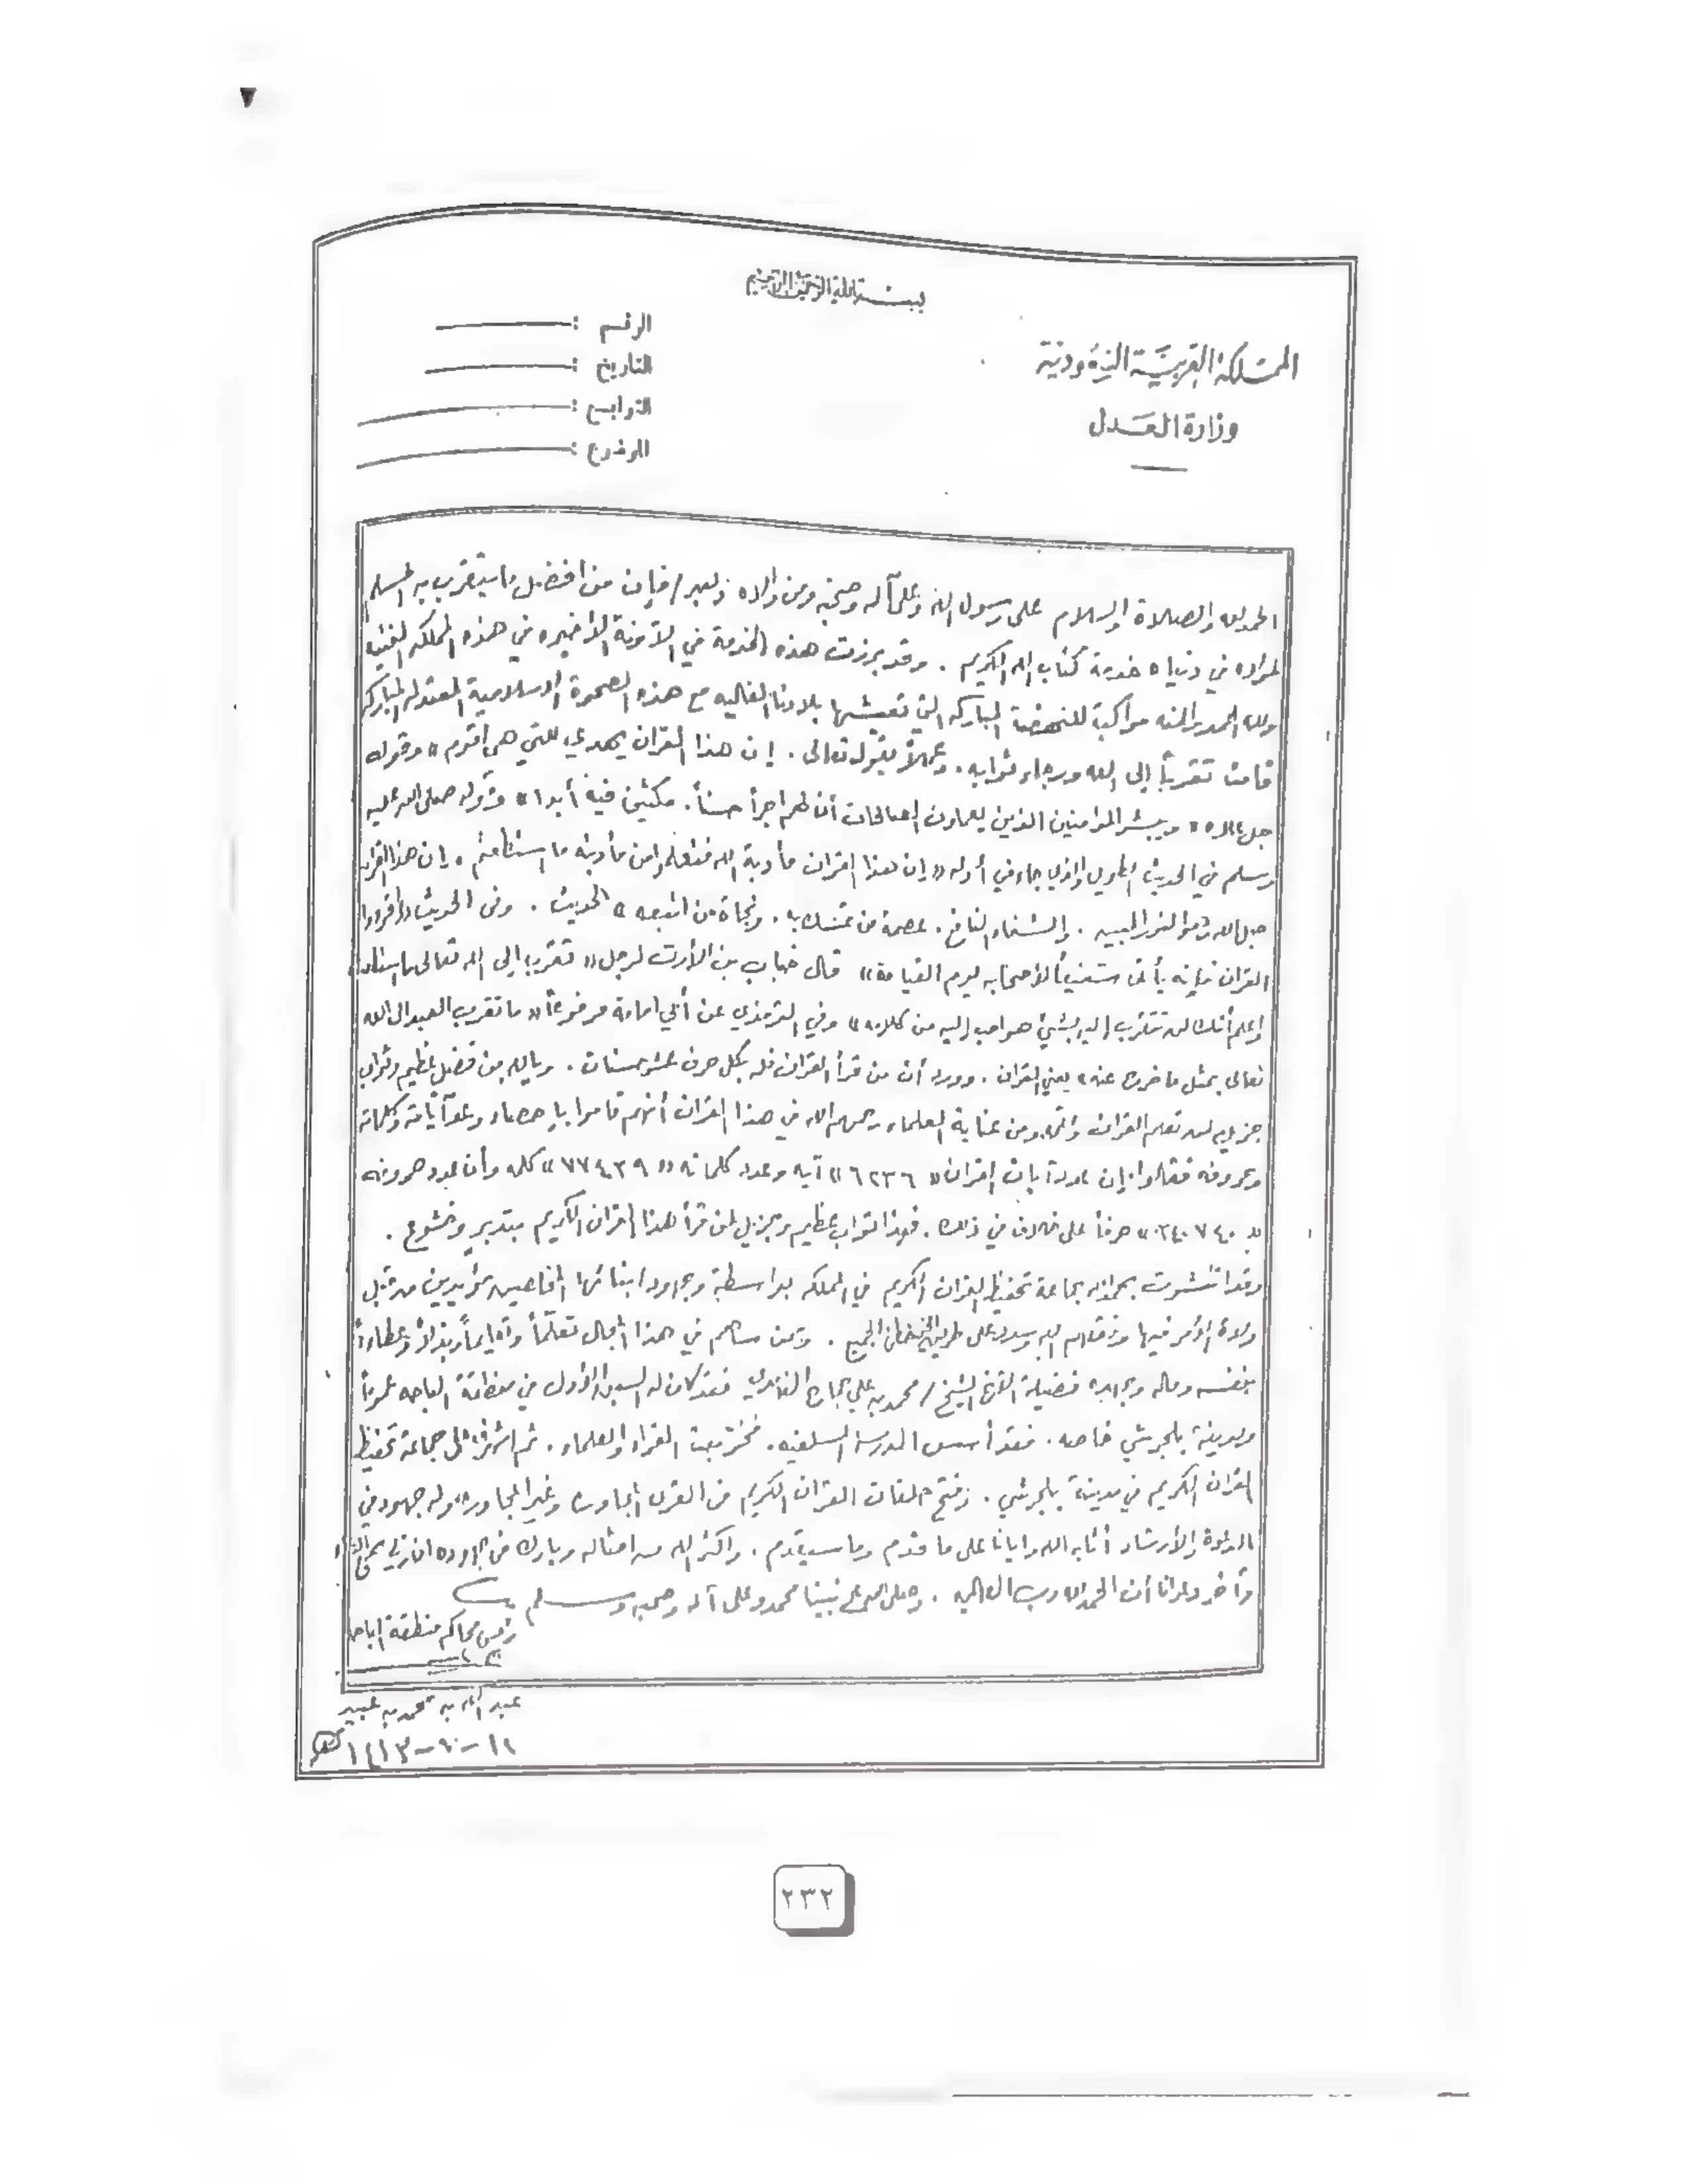 بسم الله الرحمن الرحيم
المملكة العربية السعودية
وزارة العدل
الرقم :
التاريخ :
التوابع :
الموضوع :
الحمد لله والصلاة والسلام على رسول الله وعلى آله وصحبه ومن والاه وبعد / فإن من أفضل ما يتقرب به المسلم
لمولاه في دنياه خدمة كتاب الله الكريم . وقد برزت هذه الخدمة في الآونة الأخيره في هذه المملكه الفتيه
ولله الحمد والمنه مواكبة للنهضة المباركه التي تعيشها بلادنا الغاليه مع هذه الصحوة الاسلامية المعتدله المباركه
قامت تقرباً إلى الله ورجاء ثوابه . وعملاً بقوله تعالى . إن هذا القرآن يهدي للتي هي أقوم » وقوله
جل علاه « ويبشر المؤمنين الذين يعملون الصالحات أن لهم اجراً حسناً . مكثين فيه أبدا » وقوله صلى الله عليه
وسلم في الحديث الطويل والذي جاء في أوله « إن هذا القرآن مأدبة الله فتعلموا من مأدبته ما استطعتم . إن هذا القرآن
حبل الله وهو النور المبين . والشفاء النافع . عصمة من تمسك به . ونجاة من اتبعه » الحديث . وفى الحديث « اقرءوا
القرآن فإنه يأتى شفيعاً لأصحابه يوم القيامة » قال خباب بن الأرت لرجل « تقرب إلى الله تعالى ما استطعت
واعلم أنك لن تتقرب إليه بشيء هو احب إليه من كلامه » وفي الترمذي عن أبي امامة مرفوعاً « ما تقرب العبد الى الله
تعالى بمثل ما خرج منه » يعني القرآن . وورد أن من قرأ القرآن فله بكل حرف عشر حسنات . وياله من فضل عظيم وثواب
جزيل لمن تعلم القرآن ومن عناية العلماء رحمهم الله في هذا القرآن أنهم قاموا بإحصاء وعد آياته وكلماته
وحروفه فقالوا : إن عدد آيات القرآن « ٦٢٣٦ » آيه وعدد كلماته « ٧٧٤٣٩ » كلمه وأن عدد حروفه
« ٣٤٠٧٤٠ » حرفاً على خلاف في ذلك . فهذا ثواب عظيم وجزيل لمن قرأ هذا القرآن الكريم بتدبر وخشوع .
وقد انتشرت بحمد الله جماعة تحفيظ القرآن الكريم في المملكه بواسطة وجهود ابنائها المخلصين مؤيدين من قبل
ولاة الأمر فيها وفقهم الله وسدد على طريق الخير خطى الجميع . وممن ساهم في هذا المجال تعلماً وتعليماً وبذلاً وعطاءاً
بنفسه وماله وجهده فضيلة الأخ الشيخ / محمد بن علي جماح الغامدي فقد كان له السبق الأول في منطقة الباحه عموماً
ومدينة بلجرشي خاصه . فقد أسس المدرسة السلفيه . فخرجت القراء والعلماء . ثم اشرف على جماعة تحفيظ
القرآن الكريم في مدينة بلجرشي . وفتح حلقات القرآن الكريم في القرى المجاوره وغير المجاوره وله جهود في
الدعوة والأرشاد أثابه الله وايانا على ما قدم وما سيقدم . واكثر الله من امثاله وبارك في جهوده
وآخر دعوانا أن الحمد لله رب العالمين . وصلى الله على نبينا محمد وعلى آله وصحبه وسلم
رئيس محاكم منطقة الباحة
عبد الله بن محمد بن عبيد
٢٣٢